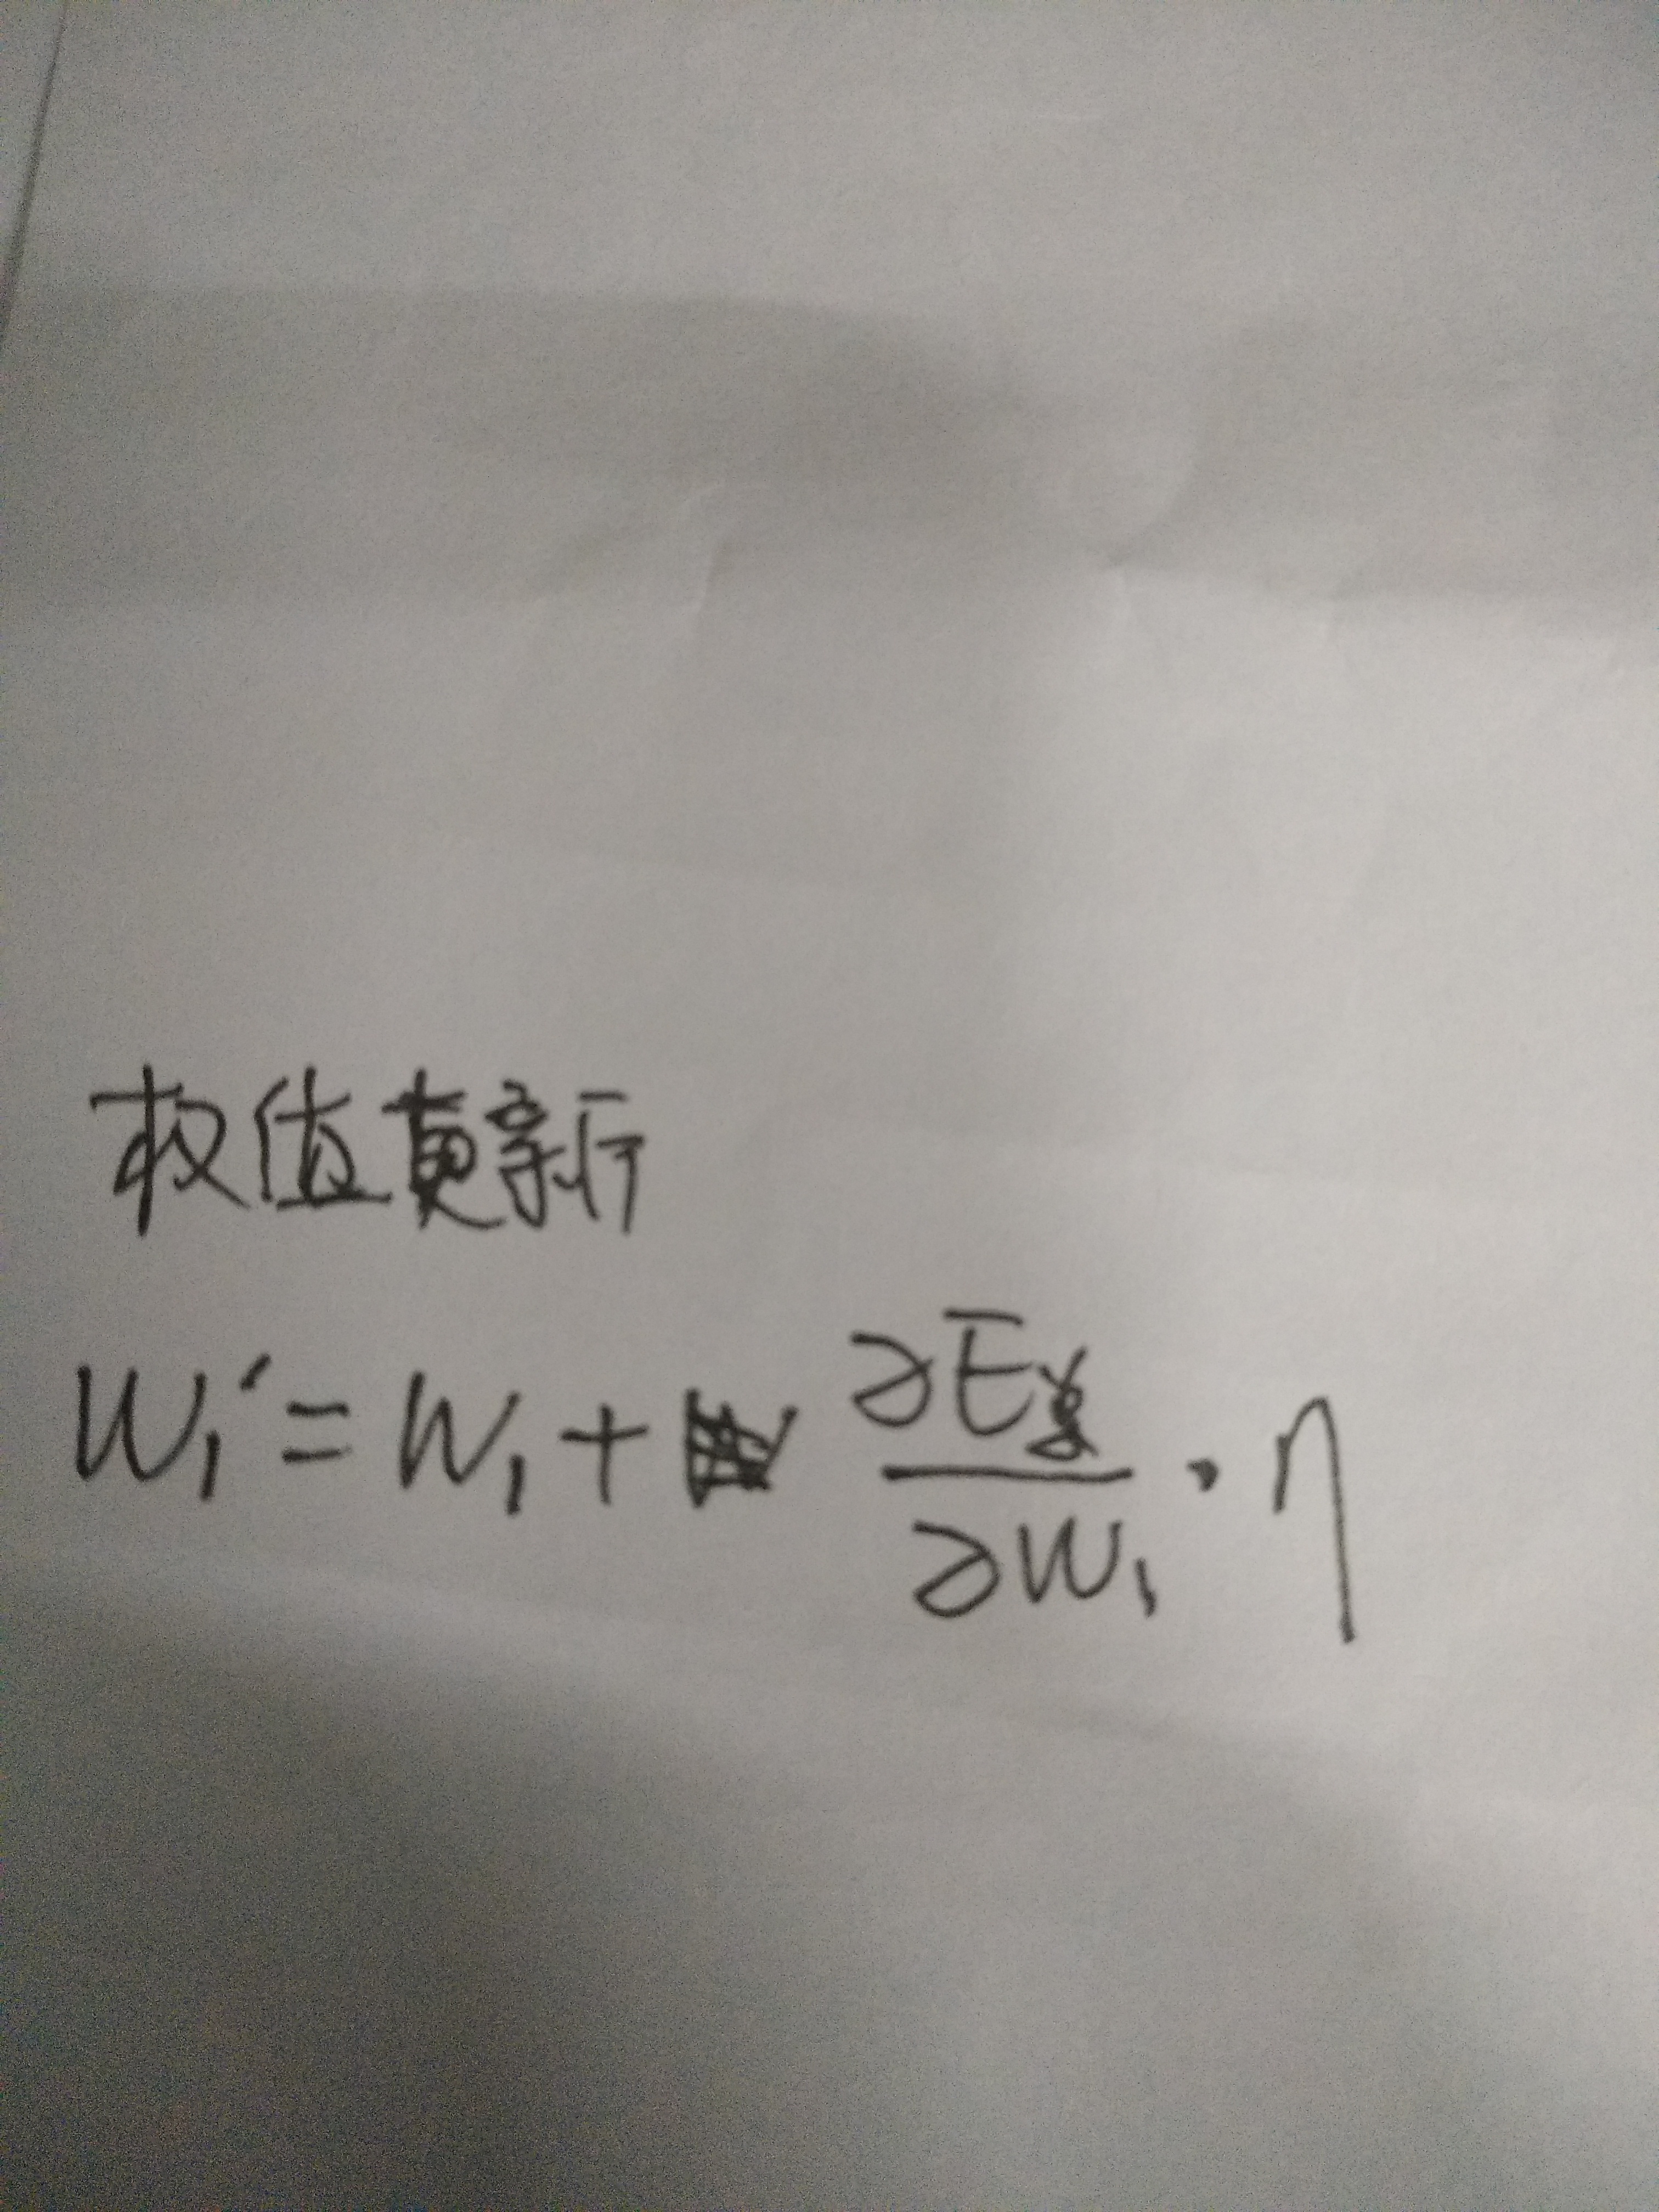 权值更新
W₁′ = W₁ + ∂E / ∂W₁ · η